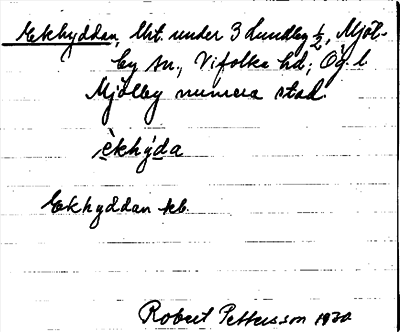 Ekhyddan, lht. under 3 Lundby ½, Mjöl-
by sn., Vifolka hd; Ög l
Mjölby numera stad.
èkhýda
Ekhyddan kb.
Robert Pettersson 1930